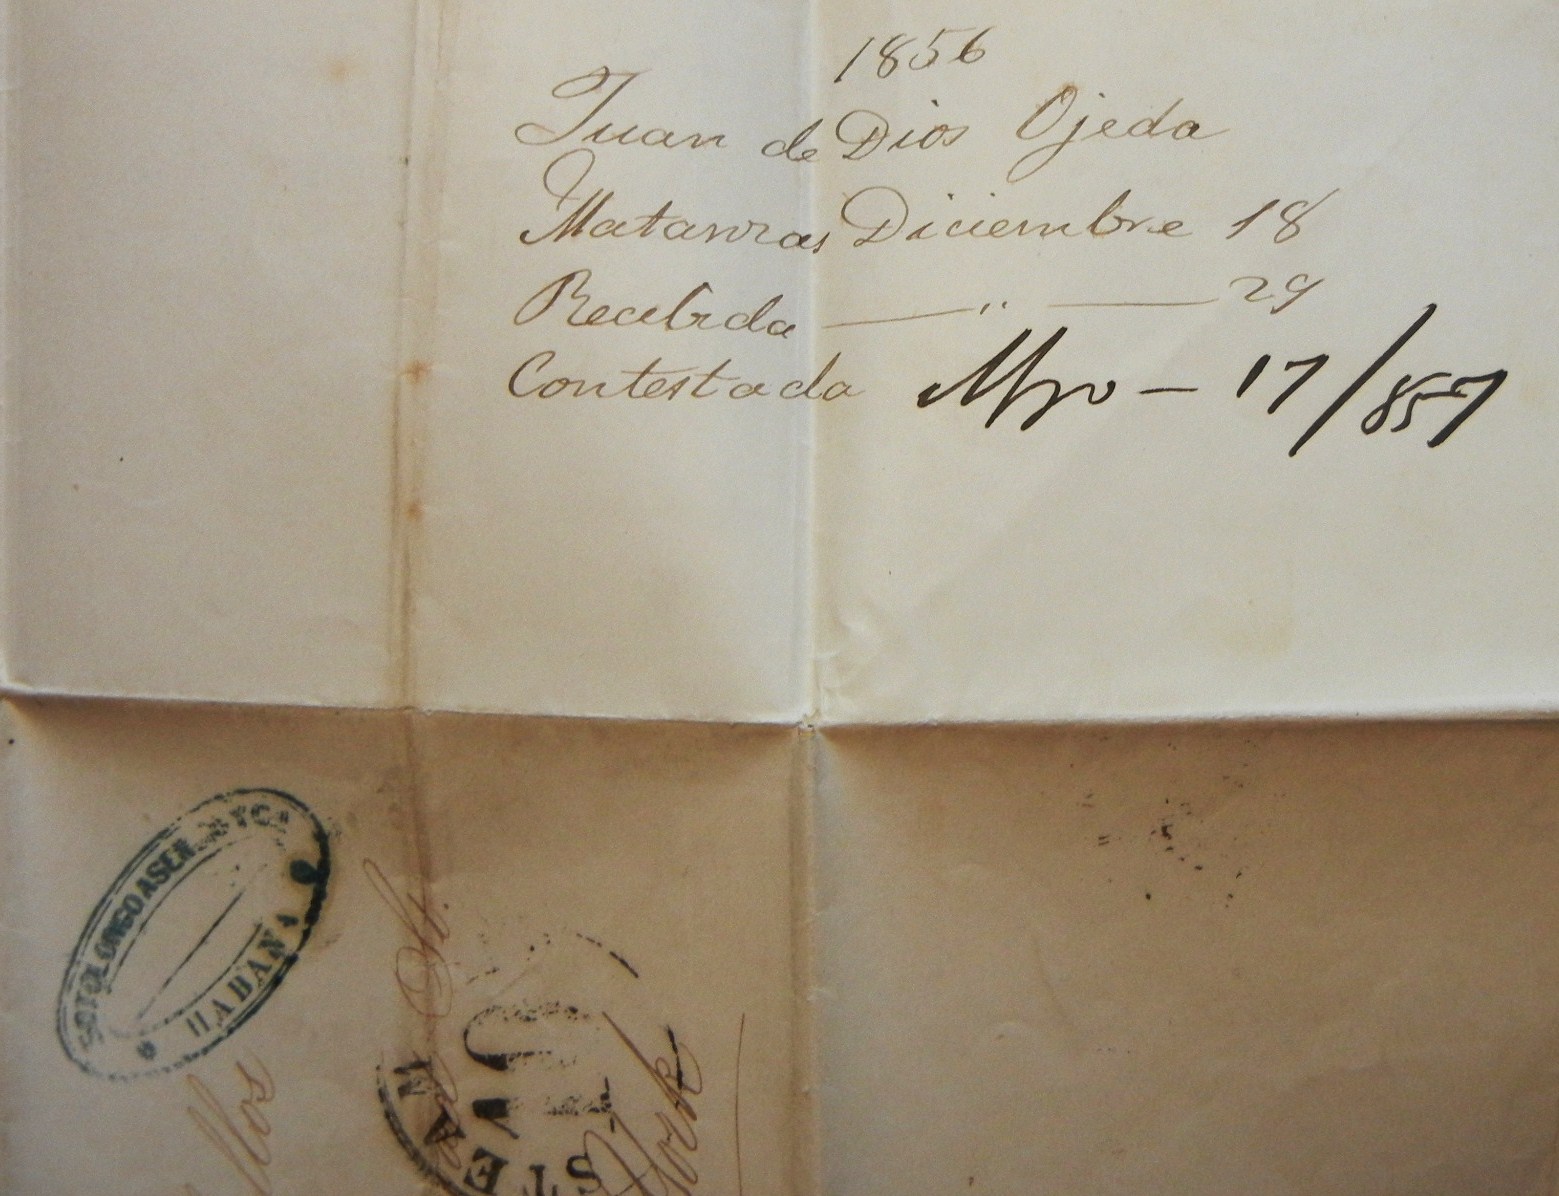 1856
Juan de Dios Ojeda
Matanzas Diciembre 18
Recibida — " — 29
Contestada Mzo — 17/857
SOTOLONGO ASEN
HABANA
St.
STEAM
York